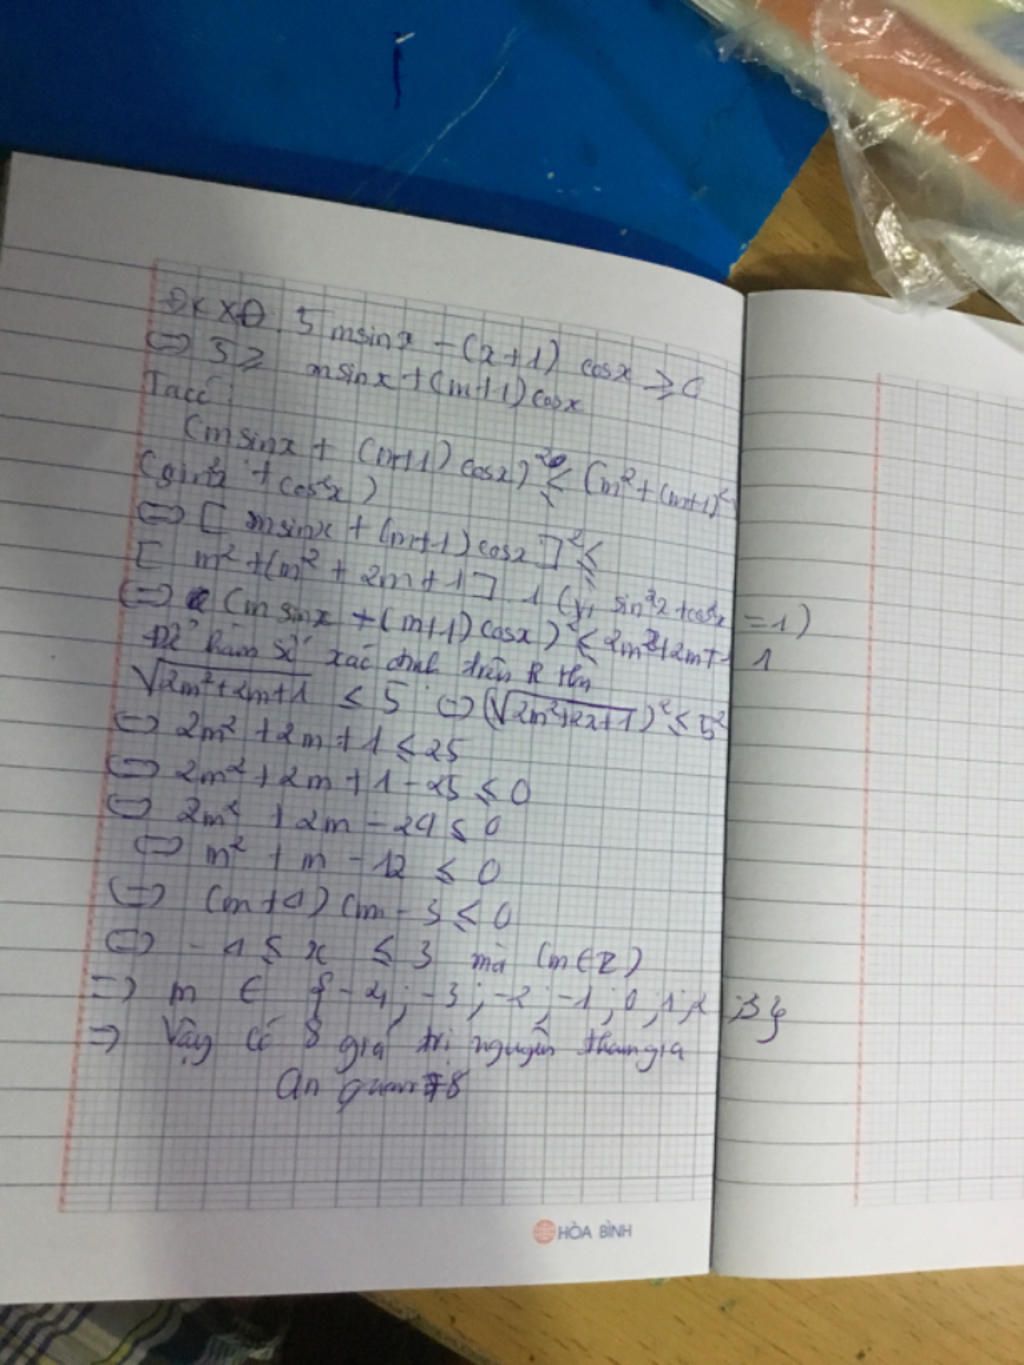 ĐKXĐ. 5 msinx - (x+1) cosx ≥ 0
⇔ 5 ≥ msinx + (m+1) cosx
Ta có:
(msinx + (m+1) cosx)² ≤ (m² + (m+1)²
(sin²x + cos²x)
⇔ [ msinx + (m+1) cosx ]² ≤
[ m² + (m² + 2m + 1 ] . 1 (vì sin²x + cos²x = 1)
⇔ (m sinx + (m+1) cosx)² ≤ 2m² + 2m + 1
Để hàm số xác định trên R thì
√2m²+2m+1 ≤ 5 ⇔ (√2m²+2x+1)² ≤ 5²
⇔ 2m² + 2m + 1 ≤ 25
⇔ 2m² + 2m + 1 - 25 ≤ 0
⇔ 2m² + 2m - 24 ≤ 0
⇔ m² + m - 12 ≤ 0
⇔ (m+4) (m - 3 ≤ 0
⇔ -4 ≤ x ≤ 3 mà (m∈Z)
⇒ m ∈ {-4; -3; -2; -1; 0; 1; 2; 3}
⇒ Vậy có 8 giá trị nguyên tham gia
HÒA BÌNH